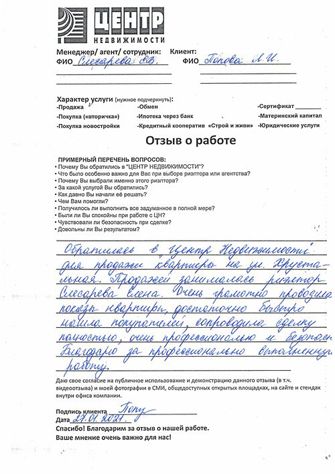 ЦЕНТР
НЕДВИЖИМОСТИ
Менеджер/ агент/ сотрудник: Клиент:
ФИО Слесарева ФИО Попова Л.И.
Характер услуги (нужное подчеркнуть):
-Продажа -Обмен -Сертификат
-Покупка (вторичка) -Ипотека через банк -Материнский капитал
-Покупка новостройки -Кредитный кооператив «Строй и живи» -Юридические услуги
Отзыв о работе
ПРИМЕРНЫЙ ПЕРЕЧЕНЬ ВОПРОСОВ:
• Почему Вы обратились в "ЦЕНТР НЕДВИЖИМОСТИ"?
• Что было особенно важно для Вас при выборе риэлтора или агентства?
• Почему Вы выбрали именно этого риэлтора?
• За какой услугой Вы обратились?
• Как давно Вы начали её решать?
• Чем Вам помогли?
• Получилось ли выполнить все задуманное в полной мере?
• Были ли Вы спокойны при работе с ЦН?
• Чувствовали ли безопасность при сделке?
• Довольны ли Вы результатом?
Обратилась в "Центр Недвижимости"
для продажи квартиры на ул. Хрусталь-
ная. Продажей занималась риэлтор
Слесарева Елена. Очень грамотно проводила
показы квартиры, достаточно быстро
нашла покупателя, сопроводила сделку
полностью, очень профессионально и безопасно.
Благодарю за профессионально выполненную
работу.
Даю свое согласие на публичное использование и демонстрацию данного отзыва (в т.ч.
видеоотзыва) и моей фотографии в СМИ, общедоступных открытых площадках, на сайте и стендах
внутри офиса компании.
Подпись клиента
Дата 27.01.2021
Спасибо! Благодарим за отзыв о нашей работе.
Ваше мнение очень важно для нас!